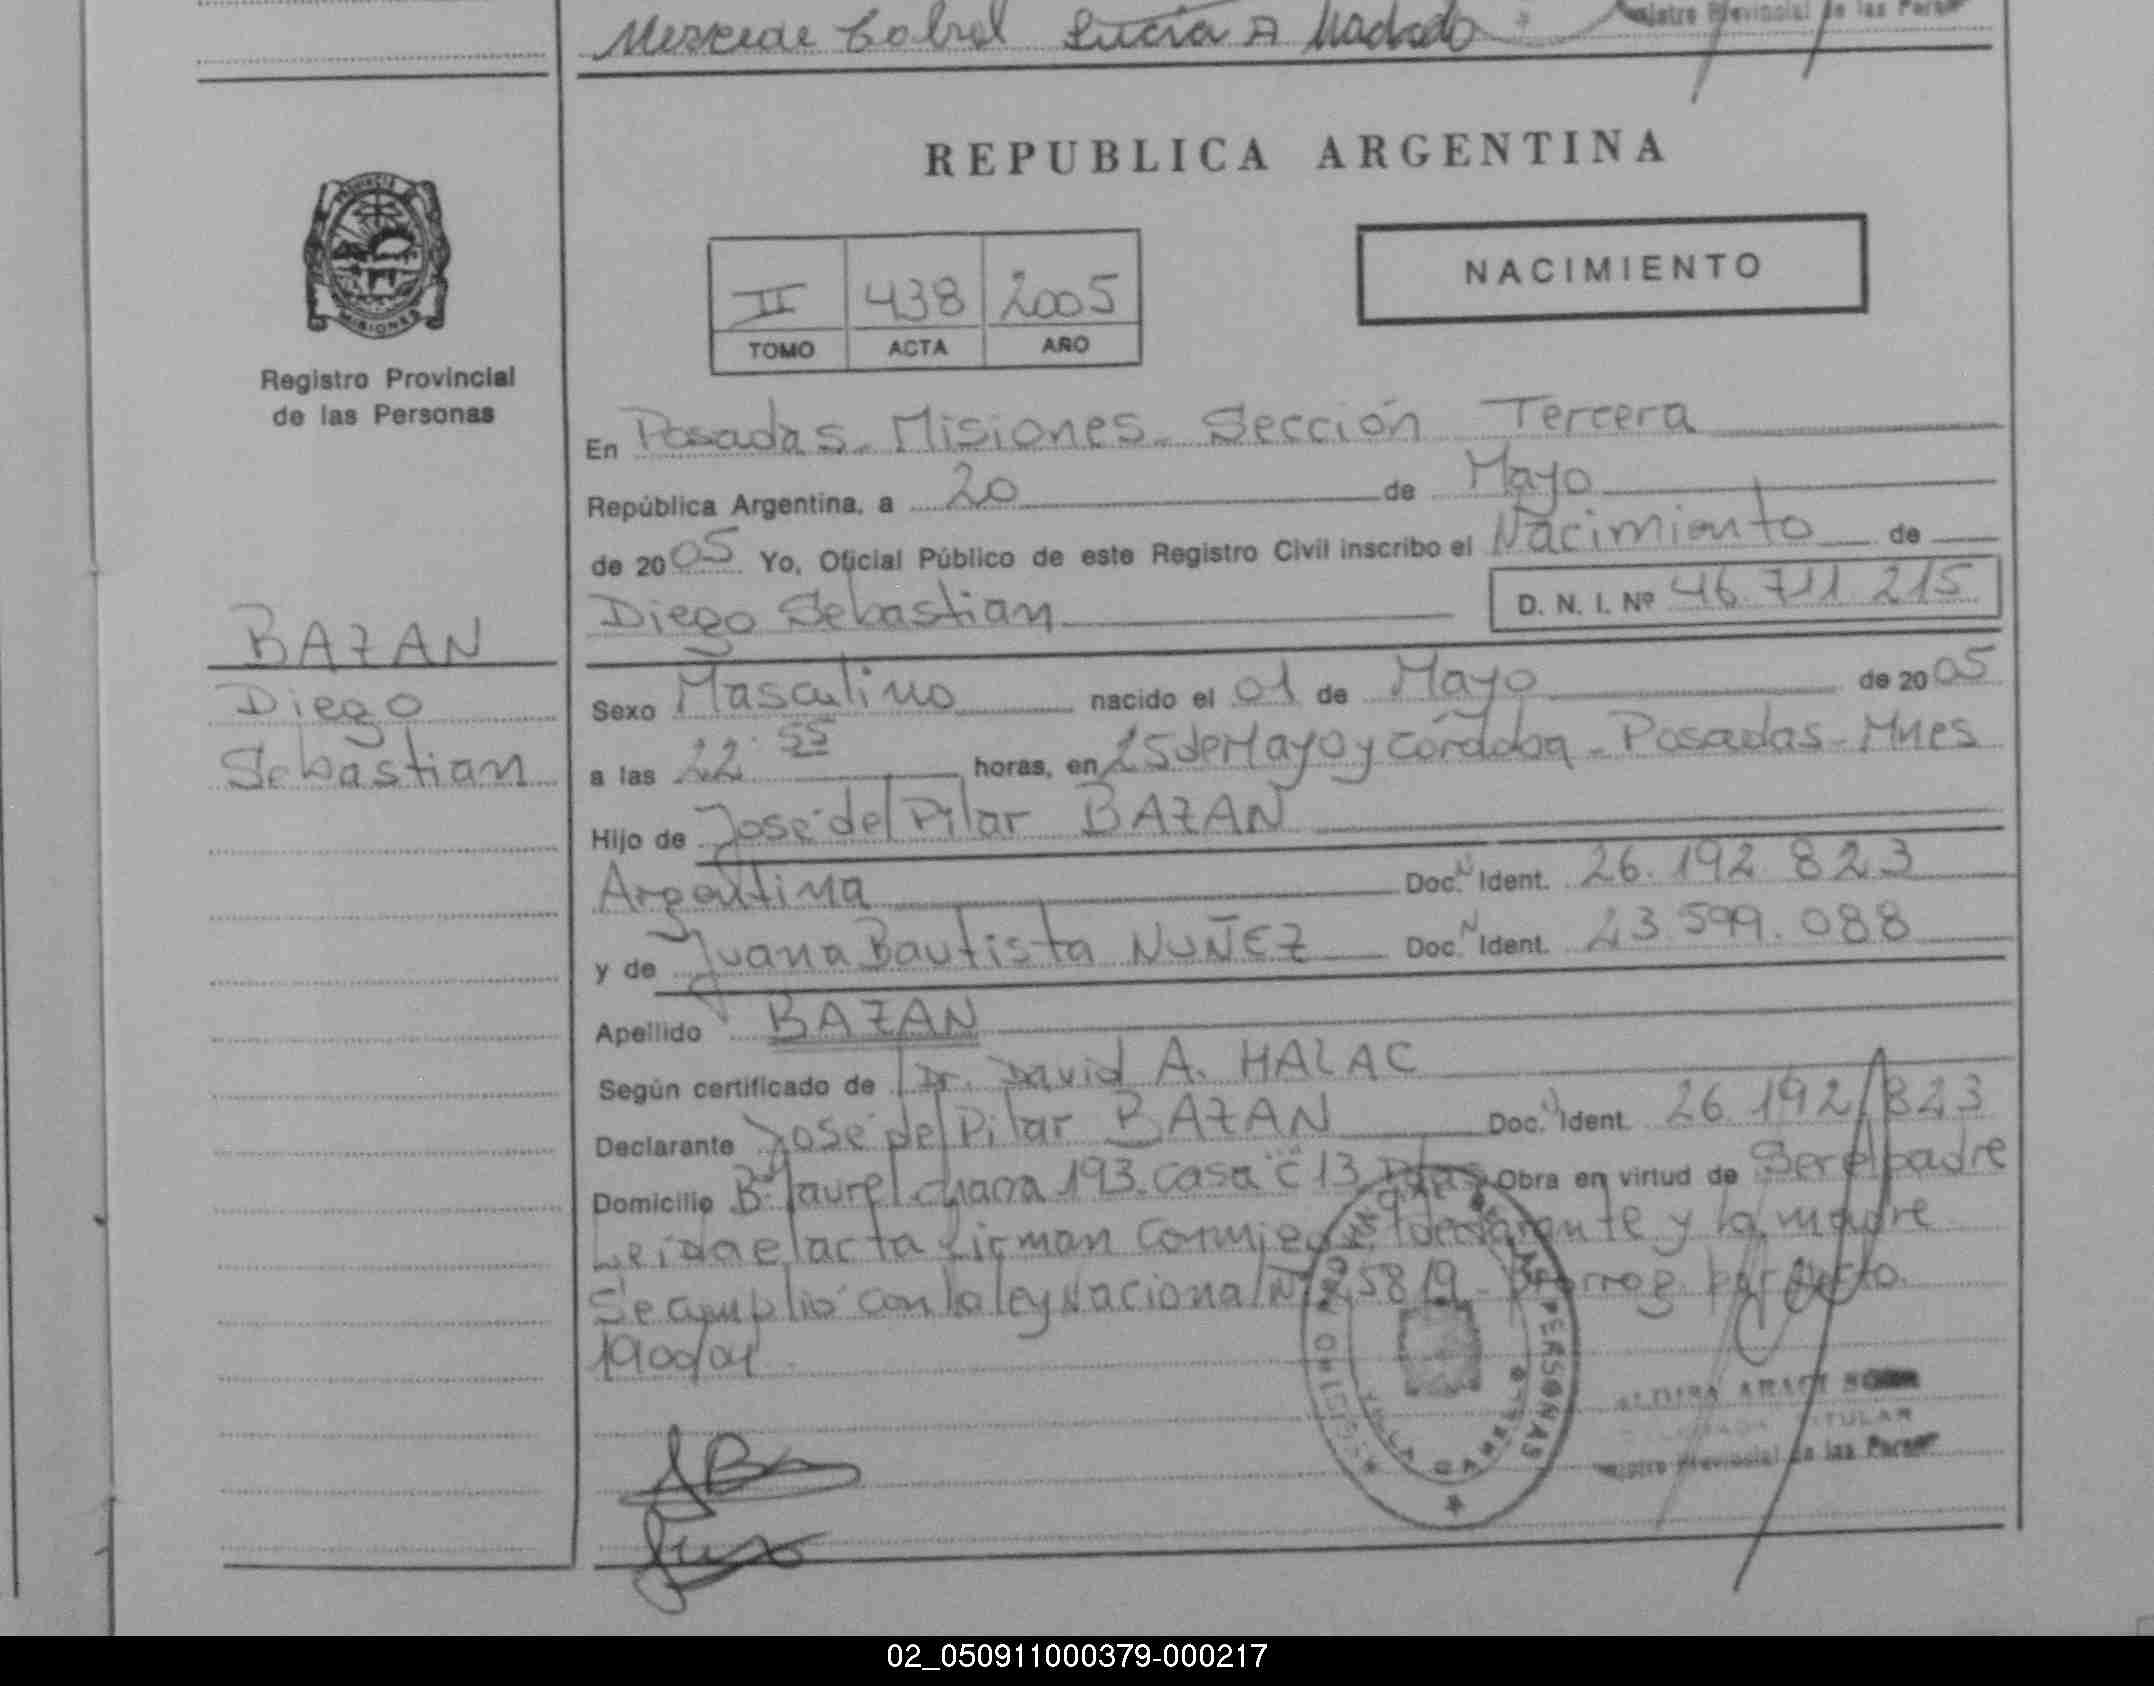 Mercede Cabrel Lucia A Machado
Registro Provincial de las Person
PROVINCIA
MISIONES
Registro Provincial
de las Personas
REPUBLICA ARGENTINA
II 438 2005
TOMO ACTA AÑO
NACIMIENTO
En Posadas - Misiones - Sección Tercera
República Argentina, a 20 de Mayo
de 2005 Yo, Oficial Público de este Registro Civil inscribo el Nacimiento de
Diego Sebastian D. N. I. Nº 46.711.215
BAZAN
Diego
Sebastian
Sexo Masculino nacido el 01 de Mayo de 2005
a las 22:55 horas, en 25 de Mayo y Cordoba - Posadas - Mnes
Hijo de José del Pilar BAZAN
Argentina Doc. N Ident. 26.192.823
y de Juana Bautista NUÑEZ Doc. N Ident. 23.599.088
Apellido BAZAN
Según certificado de Dr. David A. HALAC
Declarante José del Pilar BAZAN Doc. N Ident. 26.192.823
Domicilio Bº Laurel chacra 193. casa "C" 13 Pdas Obra en virtud de Ser el padre
Leida el acta firman conmigo el declarante y la madre
Se cumplió con la ley Nacional Nº 25819 - prorrog. por Dcto.
1900/04
PERSONAS
TITULAR
Registro Provincial de las Person
02_050911000379-000217